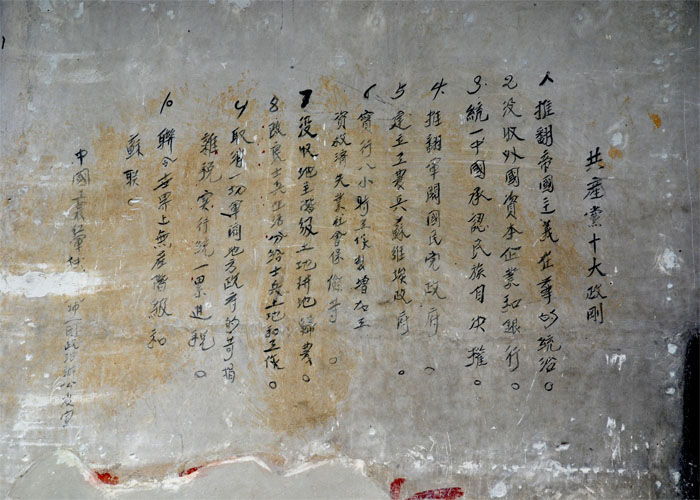 共產黨十大政剛
1 推翻帝國主義在華的統治。
2 没收外國資本企業和銀行。
3 統一中國承認民族自决權。
4 推翻軍閥國民党政府
5 建立工農兵蘇維埃政府。
6 實行八小時工作制增加工
資救濟失業社會保險等。
7 没收地主階級土地耕地歸農。
8 改良士兵生活分給士兵土地和工作。
9 取消一切軍閥地方政府的苛捐
雜税實行統一累進税。
10 聯合世界上無產階級和
蘇聯
中國